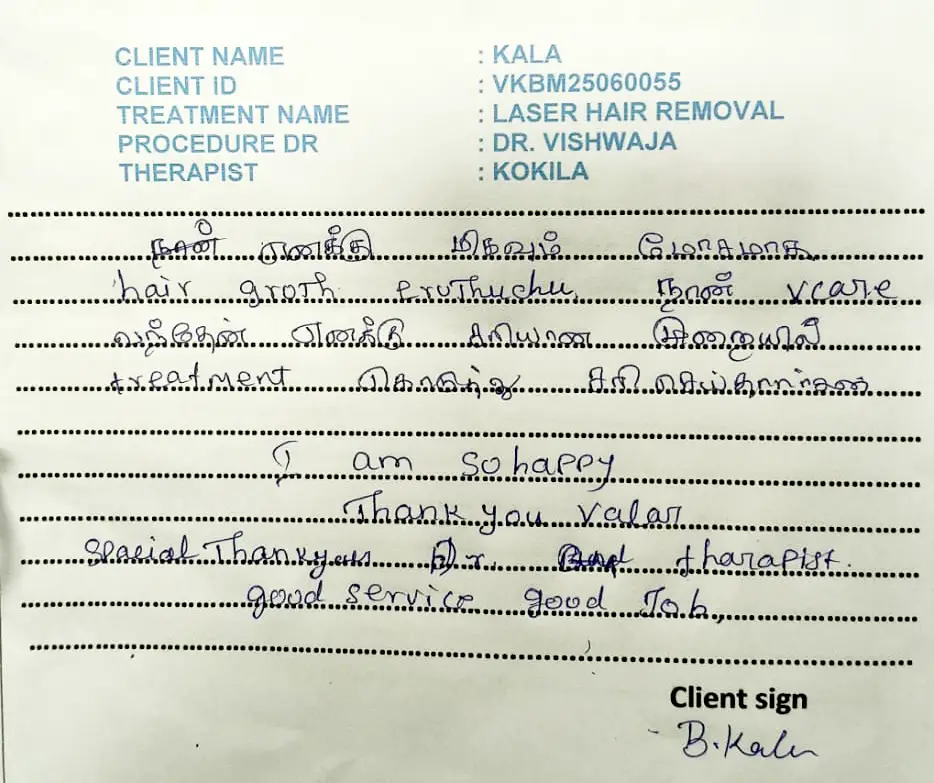 CLIENT NAME : KALA
CLIENT ID : VKBM25060055
TREATMENT NAME : LASER HAIR REMOVAL
PROCEDURE DR : DR. VISHWAJA
THERAPIST : KOKILA
நான் எனக்கு மிகவும் மோசமாக
hair groth eruthuchu நான் vcare
வந்தேன் எனக்கு சரியான முறையில்
treatment கொடுத்து சரி செய்தார்கள்
I am so happy
Thank you Valar
spacial Thankyou Dr. And tharapist.
good service good Job,
Client sign
B.Kala